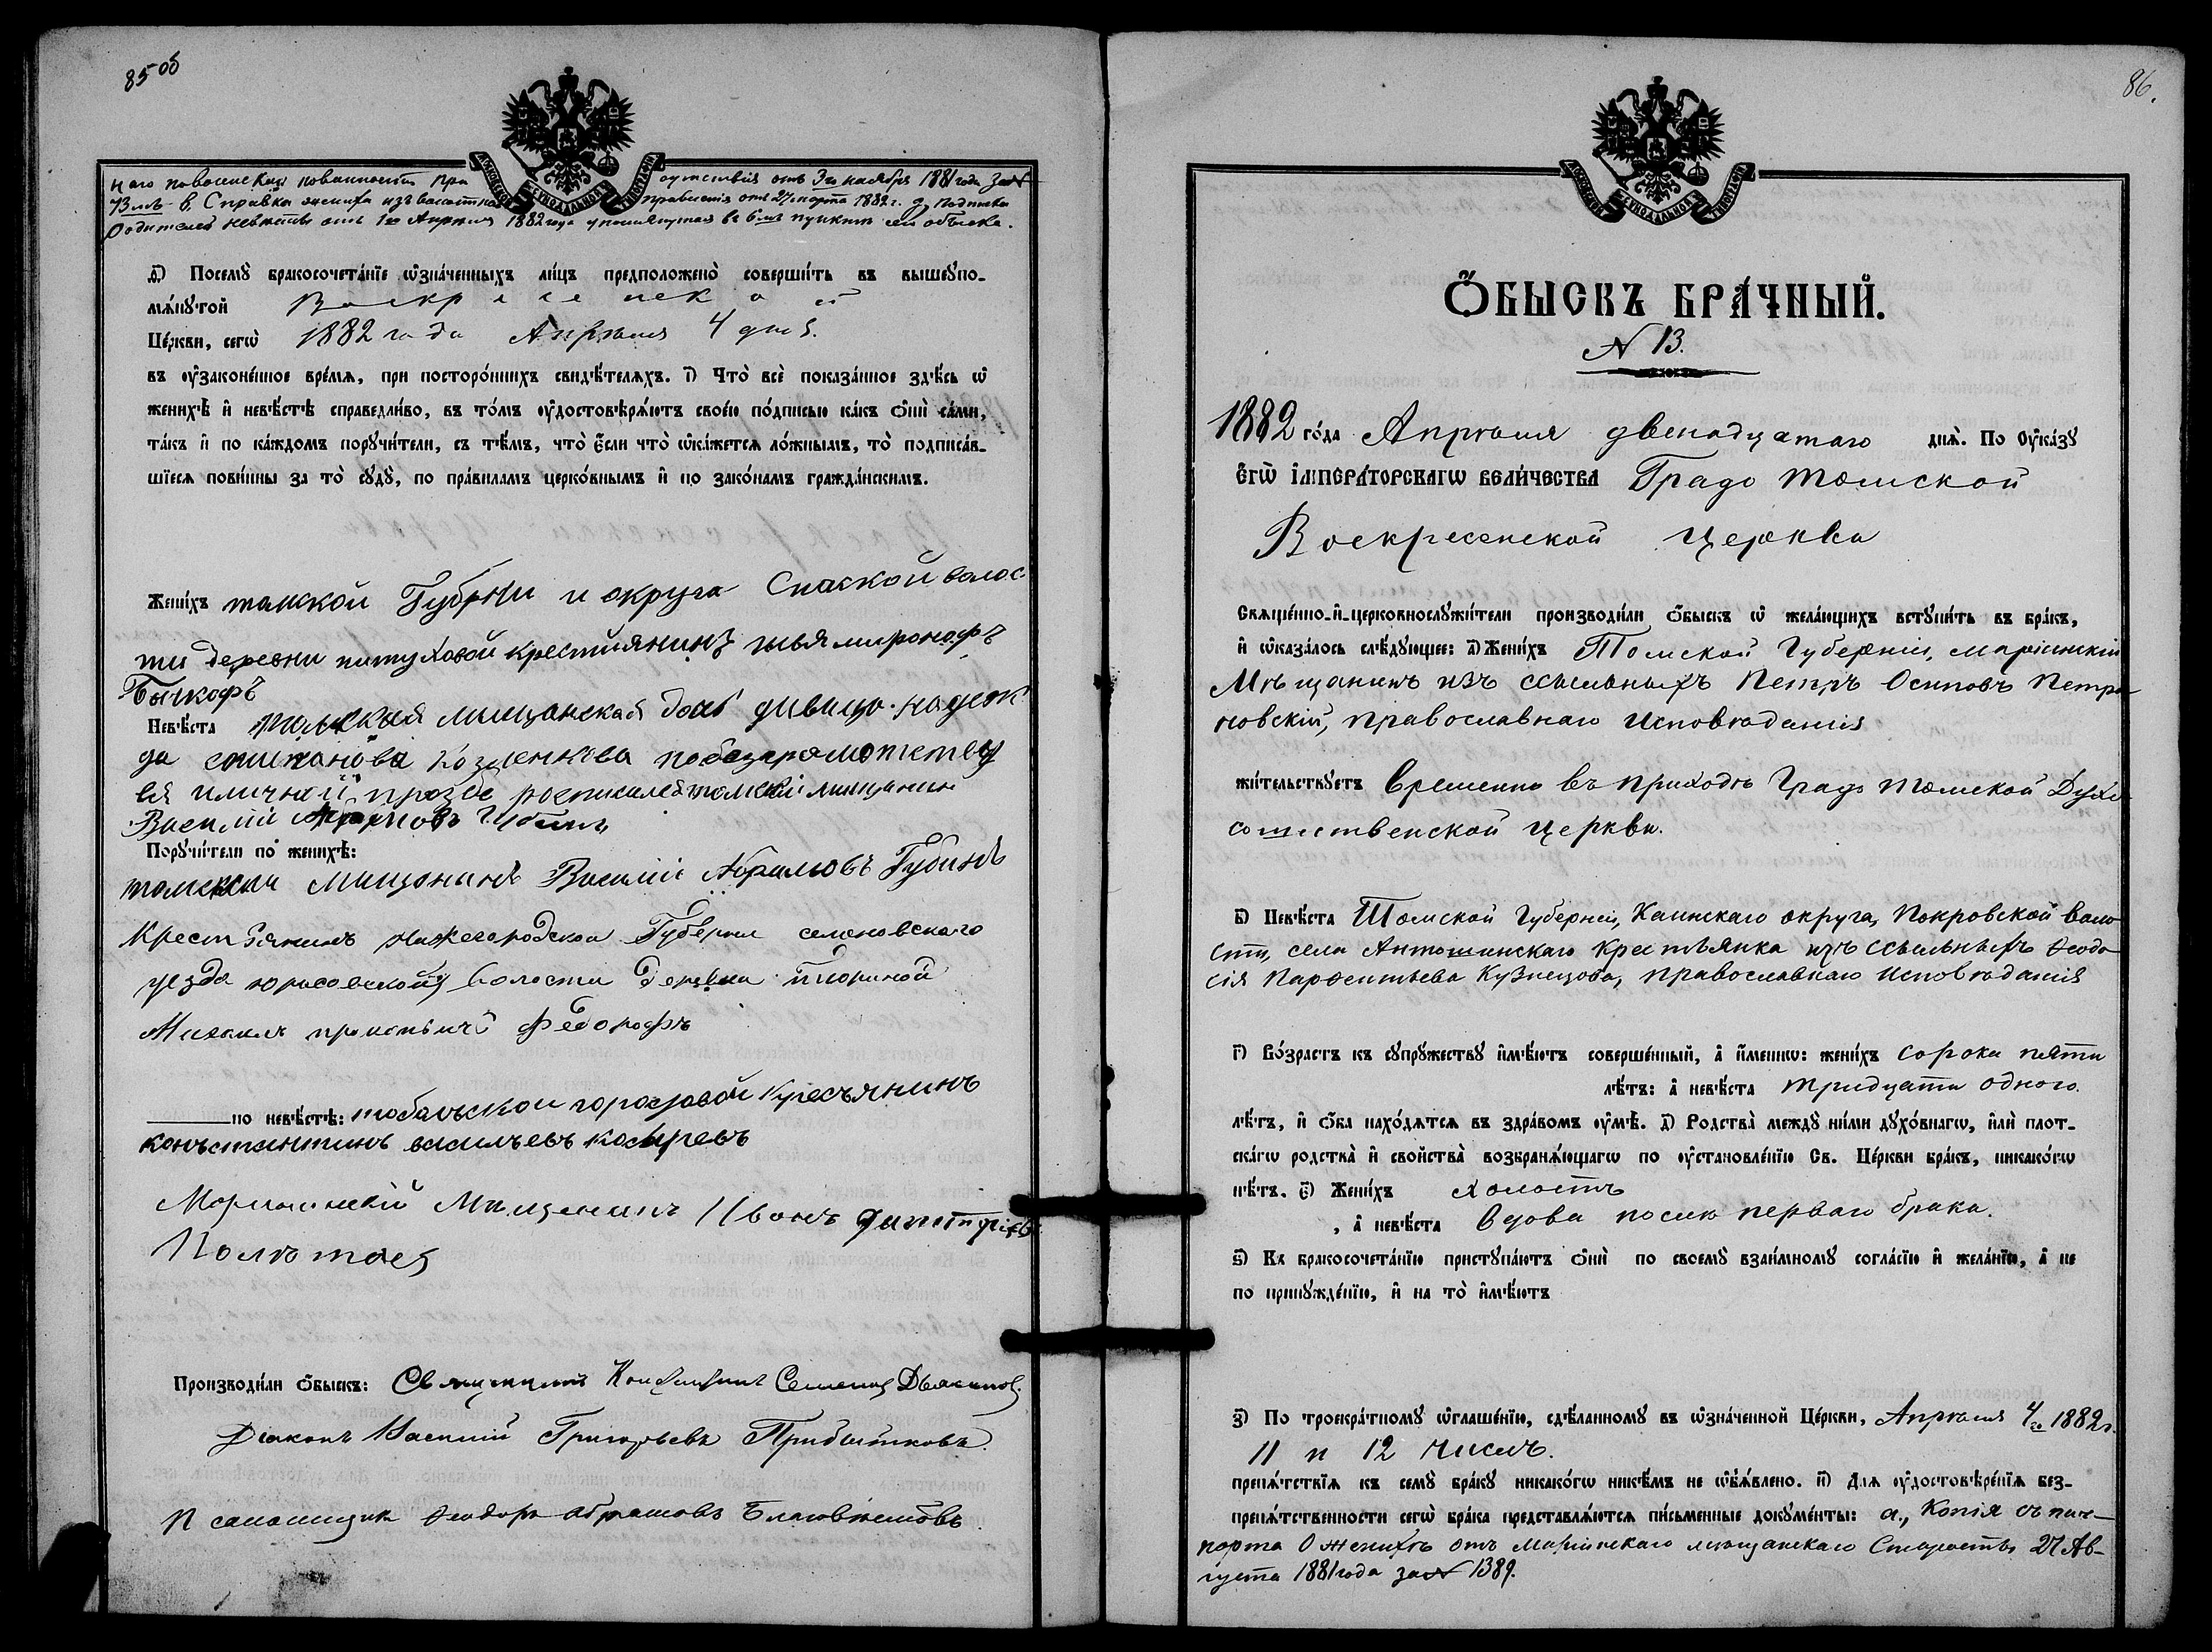 85 об
МОСКОВСКОЙ СѴНОДАЛЬНОЙ ТИПОГРАФІИ
наго по воинской повинности при сутствія отъ 3го ноября 1881 года за №
73мъ в, Справка жениха изъ волостнаго правленія отъ 27 марта 1882 г. д, Подписка
родителей невѣсты отъ 1го Апрѣля 1882 года упомянутая въ 6мъ пунктѣ сего обыска.
д҃) Посемꙋ̀ бракосочета́нїе ѡ҆зна́ченныхъ ли́цъ предположено̀ соверши́ть въ вышеꙋпо-
мѧ́нꙋтой Воскресенской
Це́ркви, сегѡ̀ 1882 года Апрѣля 4 дня.
въ ᲂу҆законе́нное вре́мѧ, при посторо́ннихъ свидѣ́телѧхъ. і҃) Что̀ всѐ показа́нное здѣ́сь ѡ҆
женихѣ̀ и҆ невѣ́стѣ справедли́во, въ то́мъ ᲂу҆достовѣрѧ́ютъ свое́ю по́дписью ка́къ ѻ҆нѝ са́ми,
та́къ и҆ по ка́ждомъ порꙋчи́тели, съ тѣ́мъ, что̀ є҆́сли что̀ ѡ҆ка́жетсѧ ло́жнымъ, то̀ подписа́в-
шїесѧ пови́нны за то̀ сꙋдꙋ̀, по пра́виламъ церко́внымъ и҆ по зако́намъ гражда́нскимъ.
Жени́хъ томской Губерни и округа Спаской волос
ти деревни питуховой крестиянинъ илья миронофъ
Бычкофъ
Невѣ́ста томская мищанская доч дивица надеж
да степанова Козленкова по безграмотству
ея иличной прозбе росписался томскій мищанин
Василій Абрамовъ Губинъ
Порꙋчи́тели по женихѣ̀:
томскіи Мищонинъ Василіи Абрамовъ Губинъ
Крестьянинъ Нижегородской Губерни семеновскаго
уезда юрасовской волости Деревни
Михаилъ Федорофъ
по невѣ́стѣ: тобольскои городовои Кресъянинъ
конъстантинъ васильевъ косыревъ
Моріинскій Мищенинъ Иванъ Димитріевъ
Полѣтаев
Производи́ли ѻ҆́быскъ: Священникъ Константинъ Семеновъ Дьяконов.
Діаконъ Василій Григорьевъ Прибытковъ.
Псаломщик Ѳеодоръ Абрамовъ Благовѣстовъ.
86.
МОСКОВСКОЙ СѴНОДАЛЬНОЙ ТИПОГРАФІИ
Ѻ҆́БЫСКЪ БРА́ЧНЫЙ.
N 13.
1882 го́да Апрѣля двенадцатаго днѧ̀. По Оу҆ка́зꙋ
Є҆ГѠ̀ І҆МПЕРА́ТОРСКАГѠ ВЕЛИ́ЧЕСТВА Градо Томской
Воскресенской Церкви
Свѧще́нно-и҆-церковнослꙋжи́тели производи́ли ѻ҆́быскъ ѡ҆ жела́ющихъ встꙋпи́ть въ бра́къ,
и҆ ѡ҆каза́лось слѣ́дꙋющее: а҃) Жени́хъ Томской Губерніи, Маріинскій
Мѣщанинъ изъ ссыльныхъ Петръ Осиповъ Петра-
новскій, православнаго исповѣданія
жи́тельствꙋетъ временно въ приходѣ Градо Томской Духо-
сошественской церкви.
в҃) Невѣ́ста Томской Губерніи, Каинскаго округа, Покровской воло-
сти, села Антошинскаго Крестьянка изъ ссыльныхъ Ѳеодо-
сія Парѳентьева Кузнецова, православнаго исповѣданія
г҃) Во́зрастъ къ сꙋпрꙋ́жествꙋ и҆мѣ́ютъ соверше́нный, а҆ и҆́меннѡ: жени́хъ сорока пяти
лѣ́тъ: а҆ невѣ́ста тридцати одного.
лѣ́тъ, и҆ ѻ҆́ба нахо́дѧтсѧ въ здра́вомъ ᲂу҆мѣ̀. д҃) Родства̀ междꙋ ни́ми дꙋхо́внагѡ, и҆лѝ плот-
ска́гѡ родства̀ и҆ свойства̀ возбранѧ́ющагѡ по ᲂу҆становле́нїю Св. Це́ркви бра́къ, никако́гѡ
нѣ́тъ. є҃) Жени́хъ холостъ
, а҆ невѣ́ста вдова послѣ перваго брака.
ѕ҃) Къ бракосочета́нїю пристꙋпа́ютъ ѻ҆нѝ по своемꙋ̀ взаи́мномꙋ согла́сїю и҆ жела́нїю, а҆ не
по принꙋжде́нїю, и҆ на то̀ и҆мѣ́ютъ
з҃) По троекра́тномꙋ ѡ҆глаше́нїю, сдѣ́ланномꙋ въ ѡ҆зна́ченной Це́ркви, Апрѣля 4го 1882 г.
11 и 12 числъ.
препѧ́тствїѧ къ семꙋ̀ бра́кꙋ никако́гѡ никѣ́мъ не ѡ҆б̾ѧ́влено. и҃) Длѧ ᲂу҆достовѣре́нїѧ без-
препѧ́тственности сегѡ̀ бра́ка представлѧ́ютсѧ пи́сьменные докꙋме́нты: а., Копія съ пас-
порта о женихѣ отъ Маріинскаго мѣщанскаго Старосты 27 Ав-
густа 1881 года за № 1389.